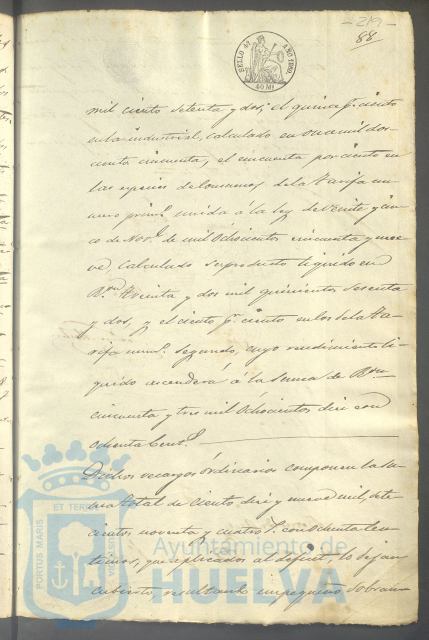 219
88
SELLO 4º AÑO 1860.
40 Ms
mil ciento setenta y dos; el quince pr. ciento
en la industrial, calculado en once mil dos-
cientos cincuenta; el cincuenta por ciento en
las especies de consumos de la tarifa nu-
mero primº unida á la ley de veinte y cin-
co de Nove. de mil ochocientos cincuenta y nue-
ve, calculado su producto liquido en
Rs. vn. treinta y dos mil quinientos sesenta
y dos, y el ciento pr. ciento en los de la ta-
rifa numº segundo, cuyo rendimiento li-
quido ascenderá á la suma de Rs. vn.
cincuenta y tres mil ochocientos diez con
ochenta cents.
Dichos recargos ordinarios componen la su-
ma total de ciento diez y nueve mil, sete-
cientos noventa y cuatro rs. con ochenta cen-
timos, que aplicados al deficit, lo dejan
cubierto, resultando un pequeño sobran-
PORTUS MARIS ET TERRAE
Ayuntamiento de
HUELVA